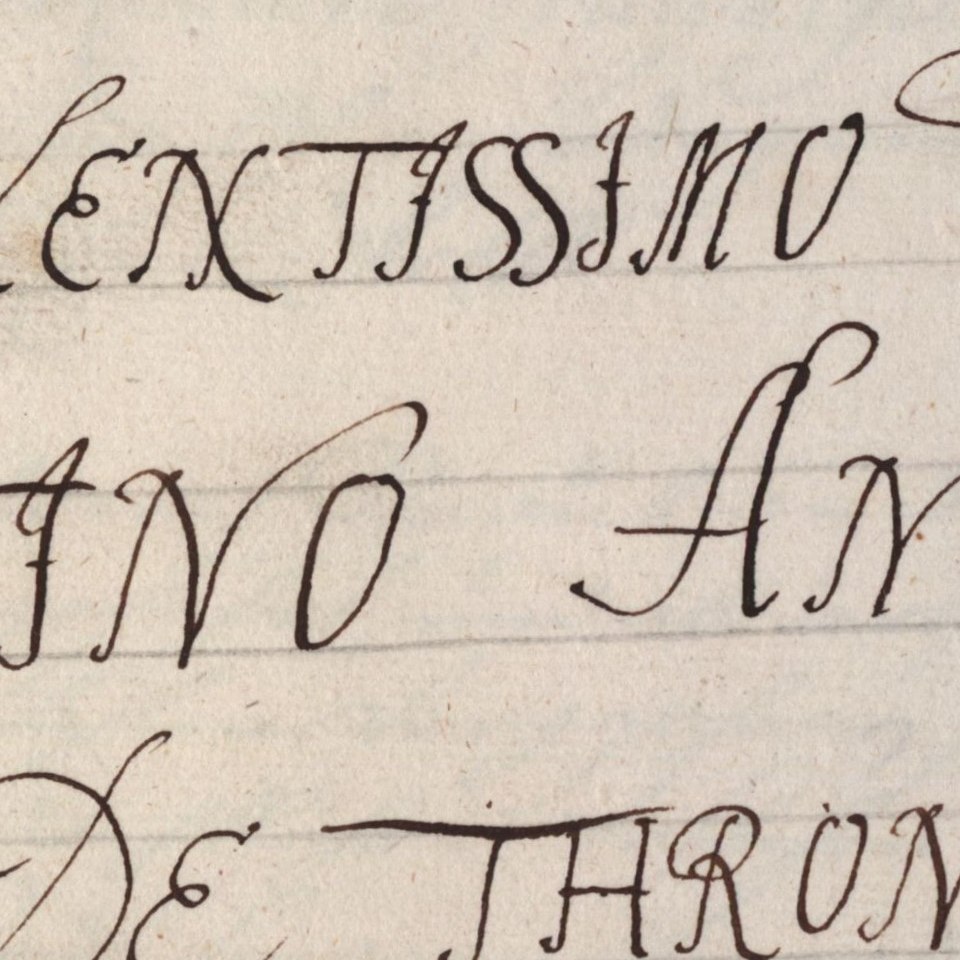 LENTISSIMO
INO AN
DE THRON